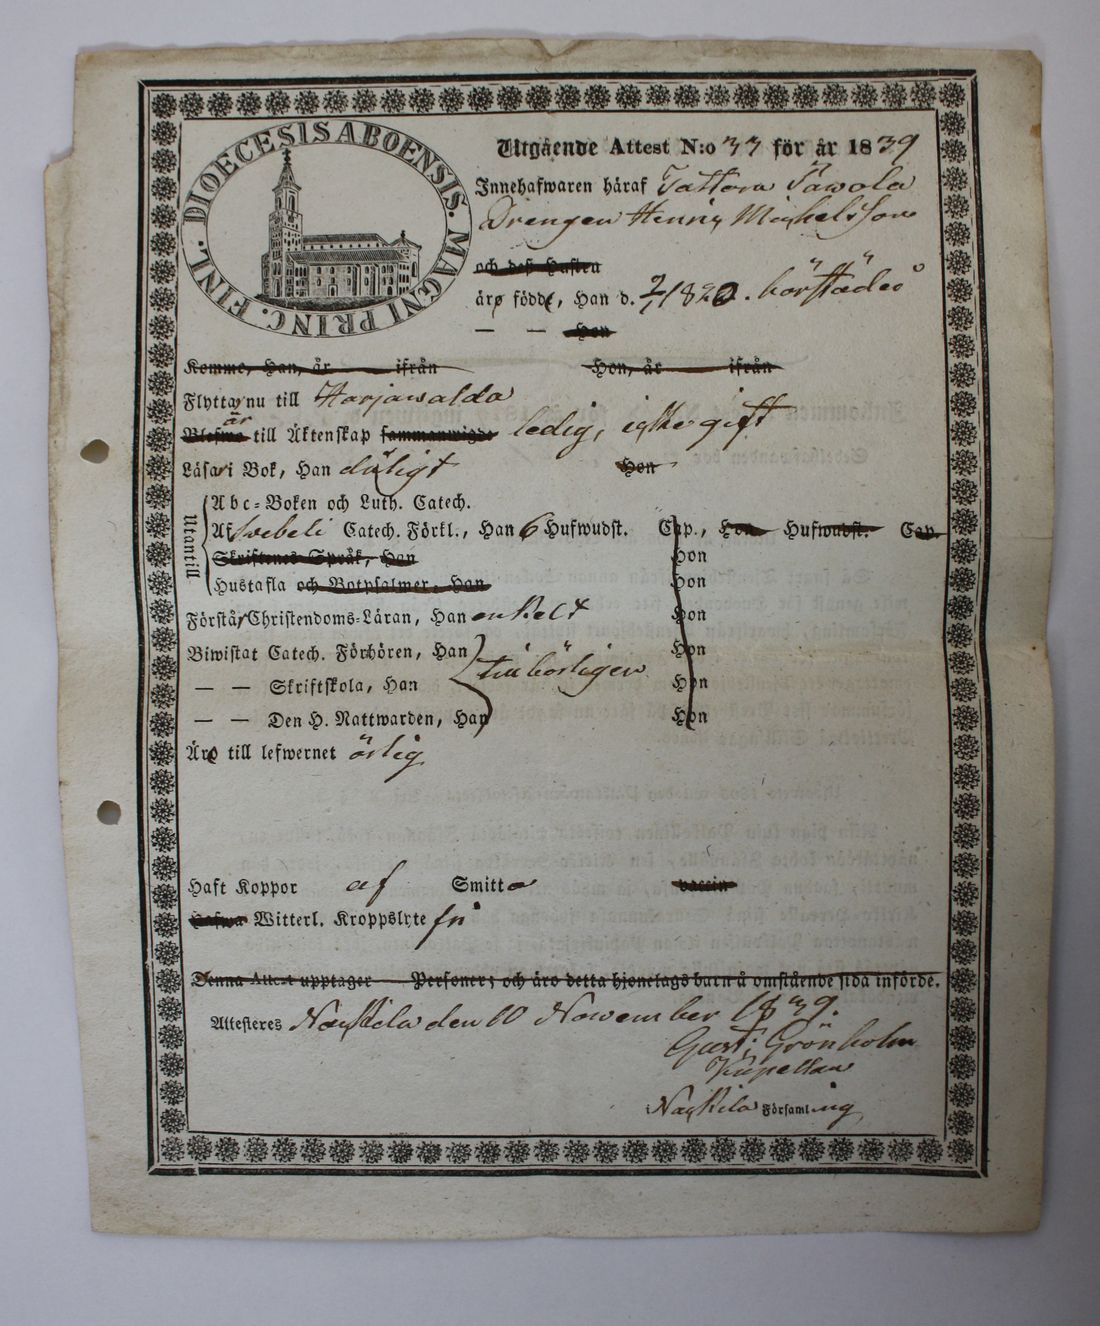 DIOECESIS ABOENSIS. MAGNI PRINC. FINL.
Utgående Attest N:o 33 för år 1839
Innehafwaren häraf Tattara Säwola
Drengen Henric Michels Son
och deß Hustru
äro född, Han d. 2/1 1820. härstädes
— — Hon
Komme, Han, år ifrån Hon, år ifrån
Flyttar nu till Harjawalda
är
Blefwa till Äktenskap sammanwigde ledig, icke gift
Läsa i Bok, Han dåligt Hon
Utantill
Abc-Boken och Luth. Catech.
Af Svebeli Catech. Förkl., Han 6 Hufwudst. Cap., Hon Hufwudst. Cap.
Skriftenes Språk, Han Hon
Hustafla och Botpsalmer, Han Hon
Förstår Christendoms-Läran, Han enkelt Hon
Biwistat Catech. Förhören, Han Hon
tillbörligen
— — Skriftskola, Han Hon
— — Den H. Nattwarden, Han Hon
Äro till lefwernet ärlig
Haft Koppor af Smitta vaccin
Hafwa Witterl. Kroppslyte fri
Denna Attest upptager Personer; och äro detta hjonelags barn å omstående sida införde.
Attesteres Nackila den 10 November 1839.
Gust: Grönholm
Kapellan
i Nackila Församling